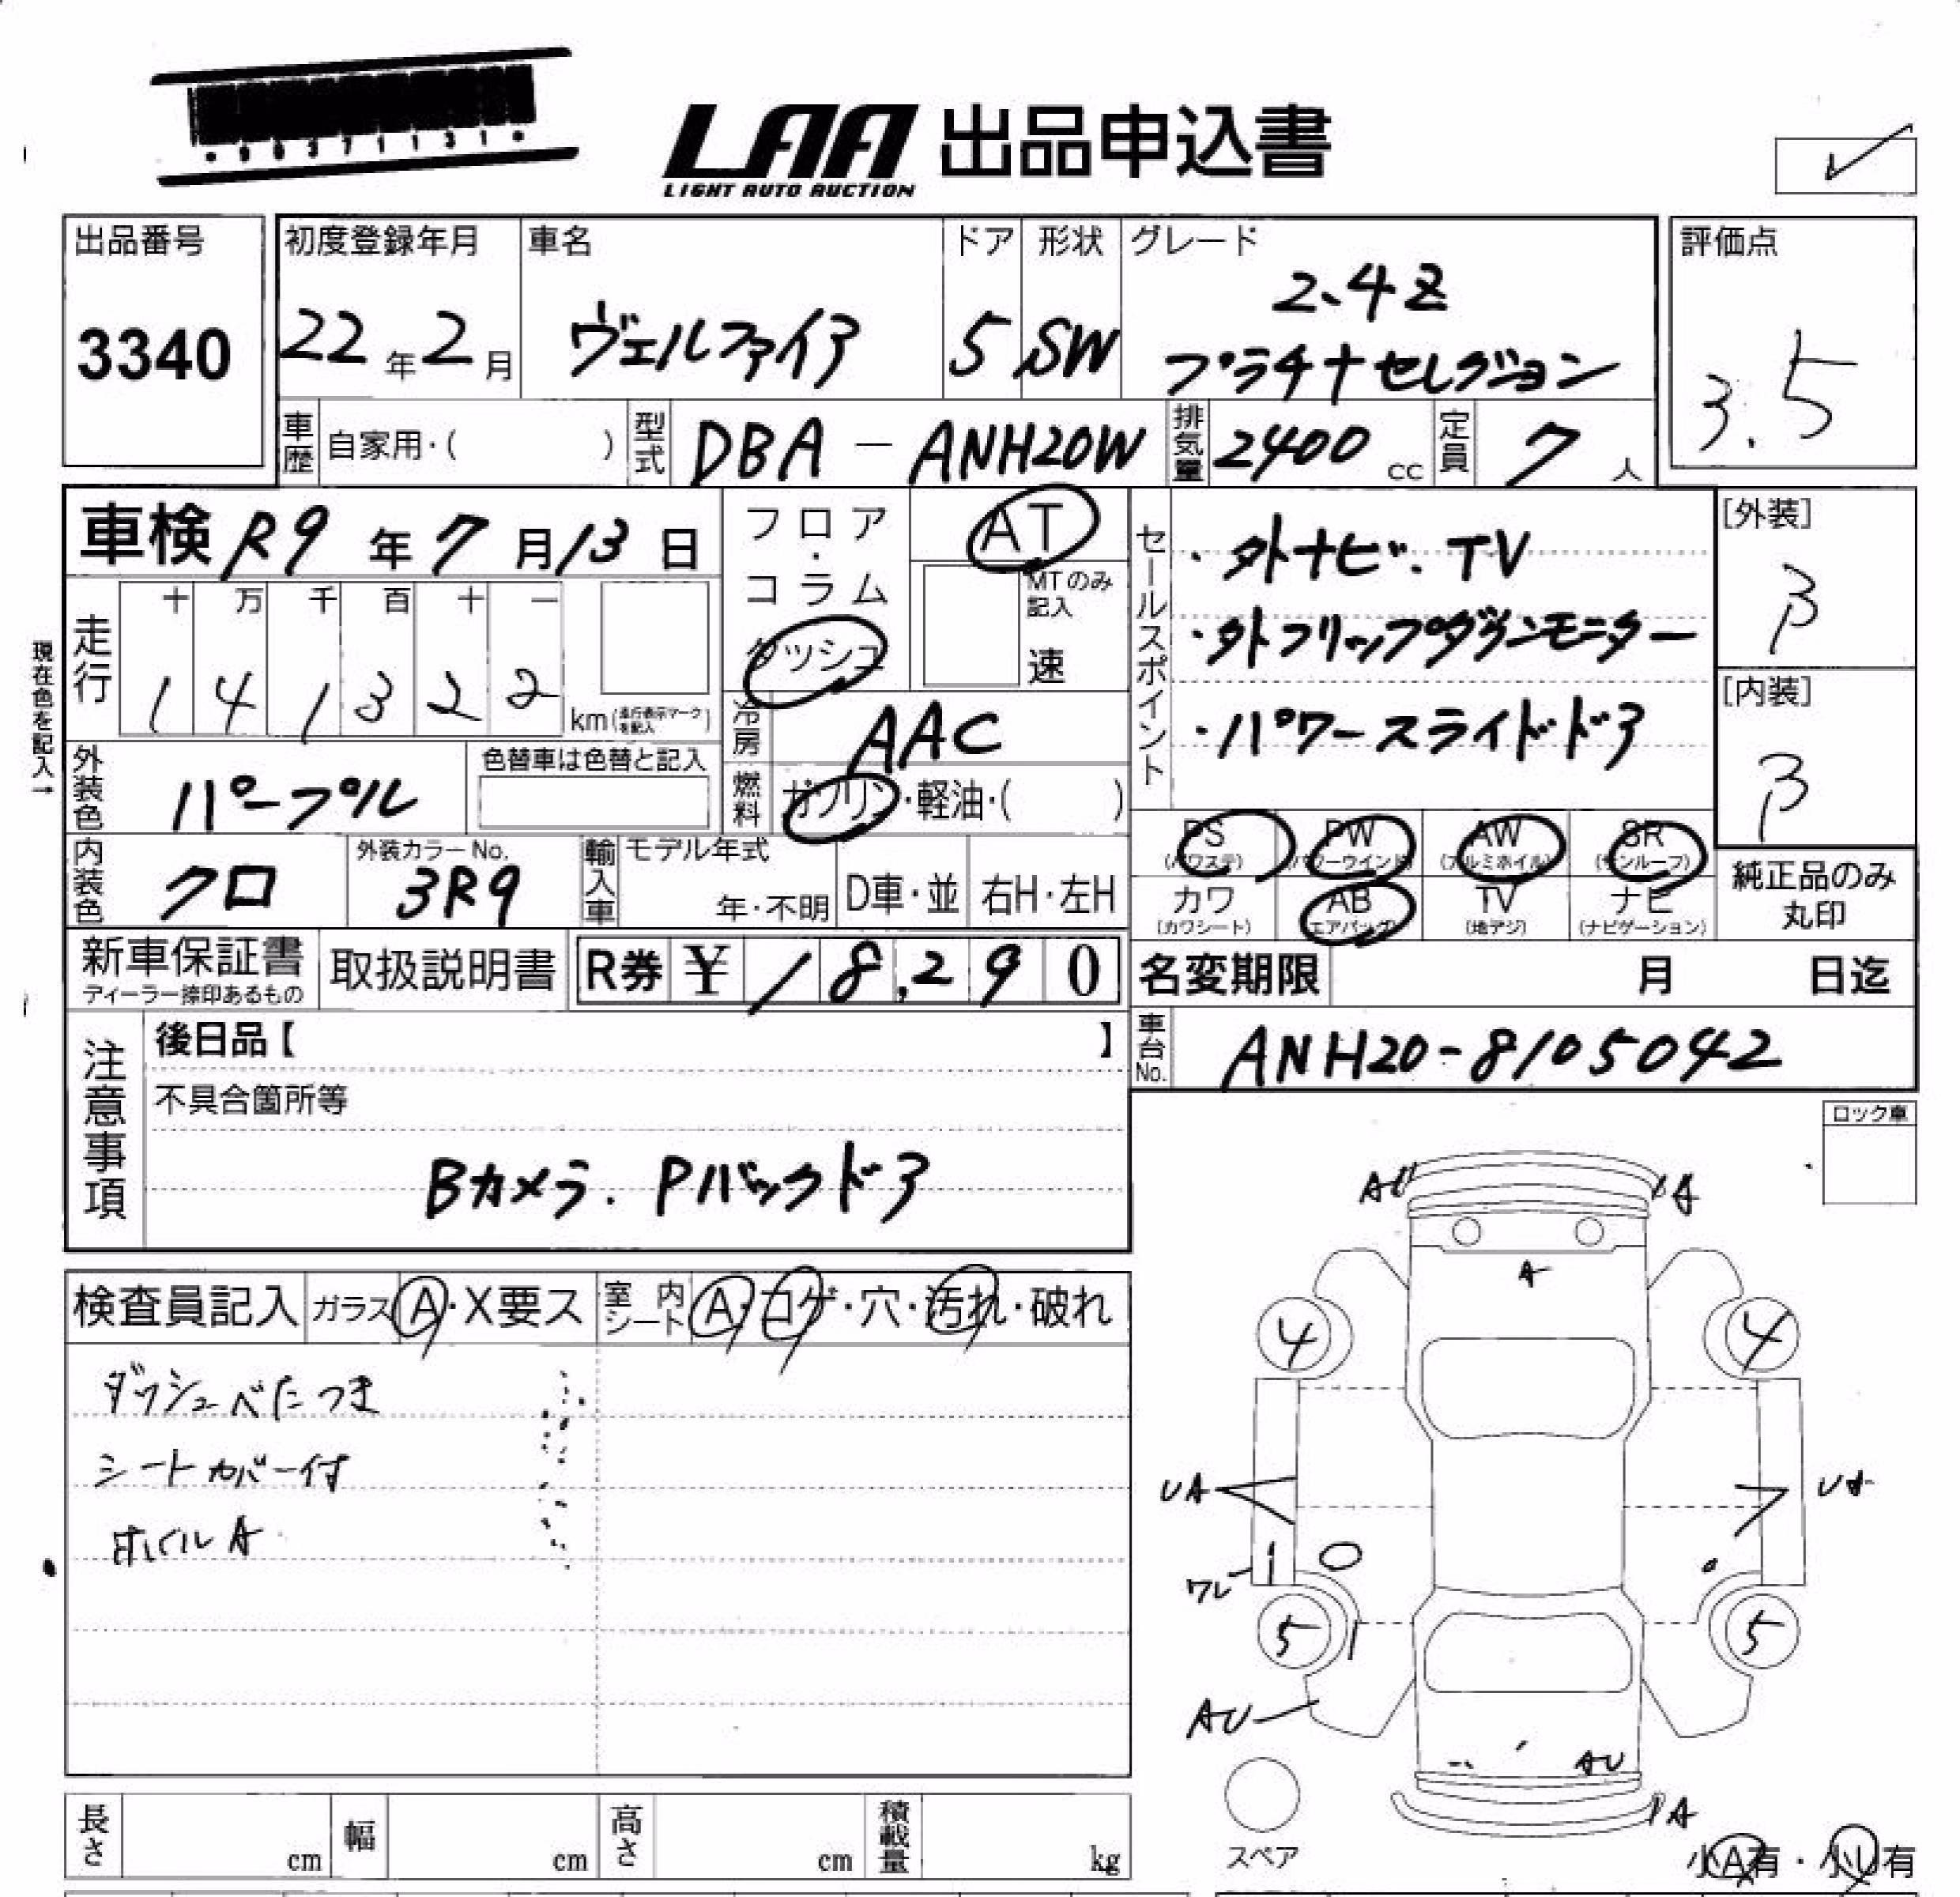 ・90371131・
LAA 出品申込書
LIGHT AUTO AUCTION
出品番号 初度登録年月 車名 ドア 形状 グレード 評価点
3340 22年2月 ヴェルファイア 5 SW 2.4Z
プラチナセレクション 3.5
車歴 自家用・( ) 型式 DBA-ANH20W 排気量 2400cc 定員 7人
車検 R9年7月13日 フロア・コラム ダッシュ AT
MTのみ記入 速
セールスポイント
・外ナビ.TV
・外フリップダウンモニター
・パワースライドドア
[外装]
B
[内装]
B
現在色を記入→
走行 十 万 千 百 十 一
1 4 1 3 2 2 km(走行表示マークを記入)
冷房 AAC
外装色 パープル 色替車は色替と記入 燃料 ガソリン・軽油・( )
PS (パワステ) PW (パワーウインド) AW (アルミホイル) SR (サンルーフ)
カワ (カワシート) AB (エアバッグ) TV (地デジ) ナビ (ナビゲーション)
純正品のみ
丸印
内装色 クロ 外装カラーNo. 3R9 輸入車 モデル年式 年・不明 D車・並 右H・左H
新車保証書 ディーラー捺印あるもの 取扱説明書 R券 ¥ 18,290 名変期限 月 日迄
注意事項 後日品【 】
車台No. ANH20-8105042
不具合箇所等
Bカメラ. Pバックドア
ロック車
検査員記入 ガラス A・X要ス 室内シート A・コゲ・穴・汚れ・破れ
ダッシュベたつき
シートカバー付
ホイルA
AU A
A
4 4
UA
ワレ
5 5
AU
AU
A
スペア
小A有・小U有
長さ cm 幅 cm 高さ cm 積載量 kg